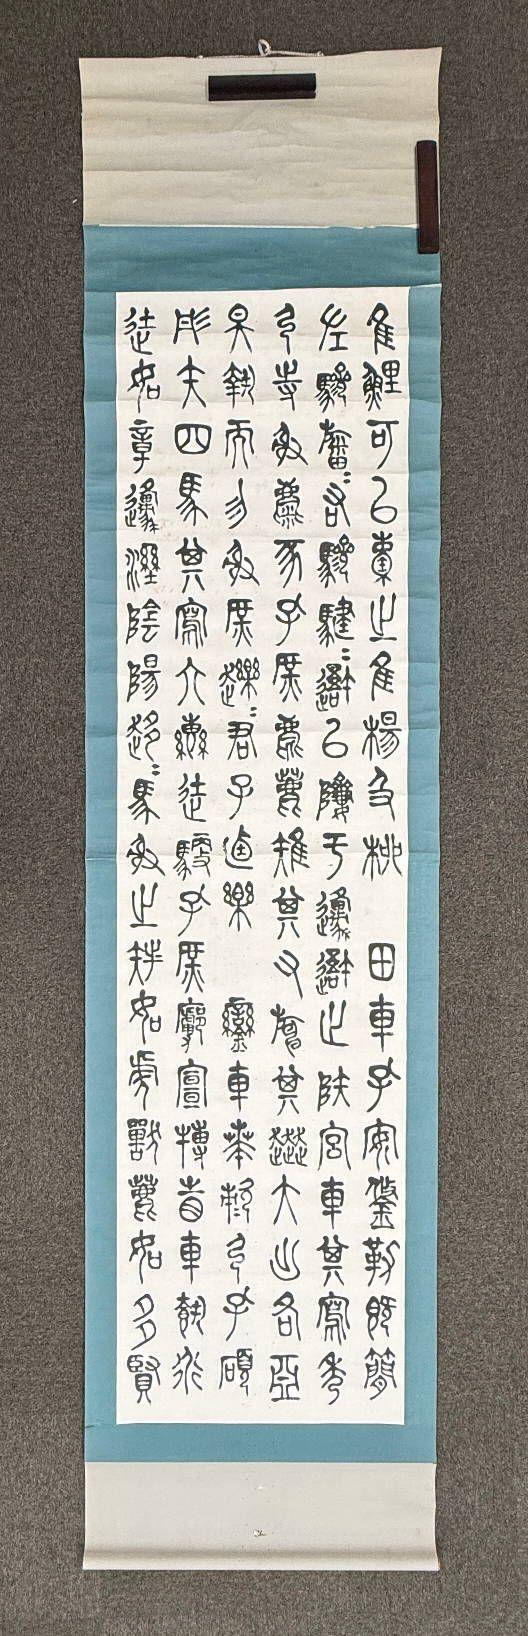 隹鯉可以橐之隹楊及柳 田車孔安鋚勒既簡
左驂旛=右驂騝=䢔以隮于邍䢔止陕宮車其寫秀
弓寺射麋豕孔庶麀鹿雉其又旃其大出各亞
昊執而勿射庶趮=君子迺樂 鑾車𠦪敕弓孔碩
彤矢四馬其寫六轡徒馭孔庶廓宣搏眚車載行
徒如章邍溼陰陽趍=馬射之族如虎獸鹿如多賢